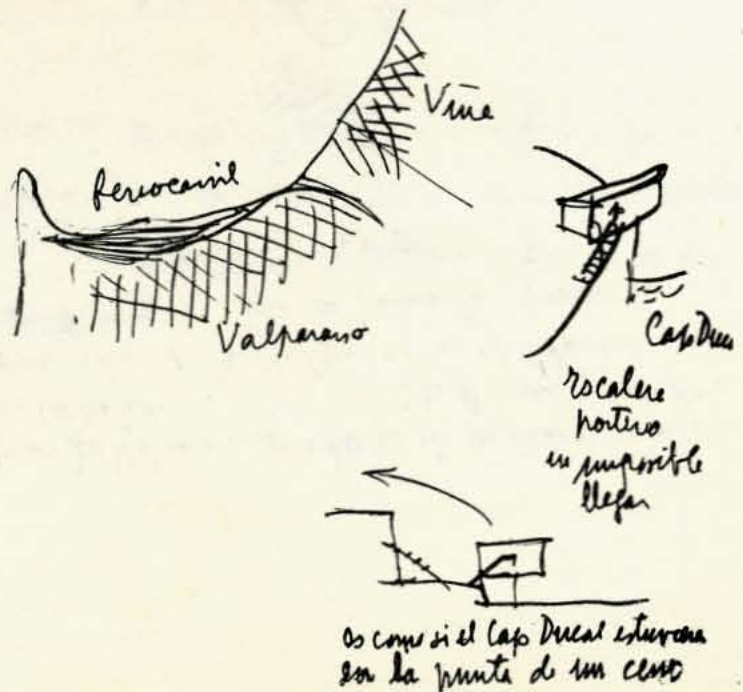 Viña
Ferrocarril
Valparaiso
Cap Ducal
escalera
portero
imposible
llegar
es como si el Cap Ducal estuviera
en la punta de un cerro